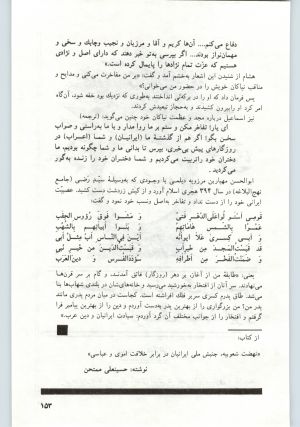 دفاع می‌کنم.... آن‌ها کریم و آقا و مرزبان و نجیب و چابک و سخی و
مهمان‌نواز بودند... اگر بپرسی به‌تو خبر دهند که دارای اصل و نژادی
هستیم که عزت تمام نژادها را پایمال کرده است.»
هشام از شنیدن این اشعار به‌خشم آمد و گفت: «بر من مفاخرت می‌کنی و مدایح و
مناقب نیاکان خویش را در حضور من می‌خوانی؟»
پس فرمان داد که او را در برکه‌ای انداختند بطوری که نزدیک بود خفه شود، آنگاه
امر کرد او را بیرون کشیدند و به‌حجاز تبعیدش کردند.
نیز اسماعیل درباره مجد و عظمت نیاکان خود چنین می‌گوید: (ترجمه)
ای یارا تفاخر مکن و ستم بر ما روا مدار و با ما به‌راستی و صواب
سخن بگو! اگر هم از گذشتهٔ ما (ایرانیان) و شما (اعراب) در
روزگارهای پیش بی‌خبری، بپرس تا بدانی ما و شما چگونه بودیم، ما
دختران خود را تربیت می‌کردیم و شما دختران خود را زنده به‌گور
می‌کردید.»
ابوالحسن مهیاربن مرزویه دیلمی با وجودی که به‌وسیلهٔ سید رضی (جامع
نهج‌البلاغه) در سال ۳۹۴ هجری اسلام آورد و از کیش زردشت دست کشید، عصبیت
ایرانی خود را از دست نداد و تفاخر به‌اصل و نسب خود نمود و گفت:
قومی استولوا علی الدهر فتی و مشوا فوق رؤوس الحقب
عمموا بالشمس هاماتهم و بنوا ابیاتهم بالشهب
و ابی کسری علا ایوانه این فی الناس اب مثل ابی
قد قبست المجد من خیر اب و قبست الدین من خیر نبی
و ضممت الفخر من اطرافه سودد الفرس و دین العرب
یعنی: طایفه من از آغاز، بر دهر (روزگار) فائق آمدند، و گام بر سر قرن‌ها
می‌نهادند. سر آنان از افتخار به‌خورشید می‌رسید و خانه‌های‌شان در بلندی شهاب‌ها بنا
می‌شد. طاق پدرم کسری سر بر فلک افراشته است. کجاست در میان مردم پدری مانند
پدر من! من بزرگواری را از بهترین پدر به‌دست آوردم و دین خود را از بهترین پیامبر
گرفتم و افتخار را از جوانب مختلف آن گرد آوردم: سیادت ایرانیان و دین عرب.»
از کتاب:
«نهضت شعوبیه، جنبش ملی ایرانیان در برابر خلافت اموی و عباسی»
نوشته: حسینعلی ممتحن
۱۵۳